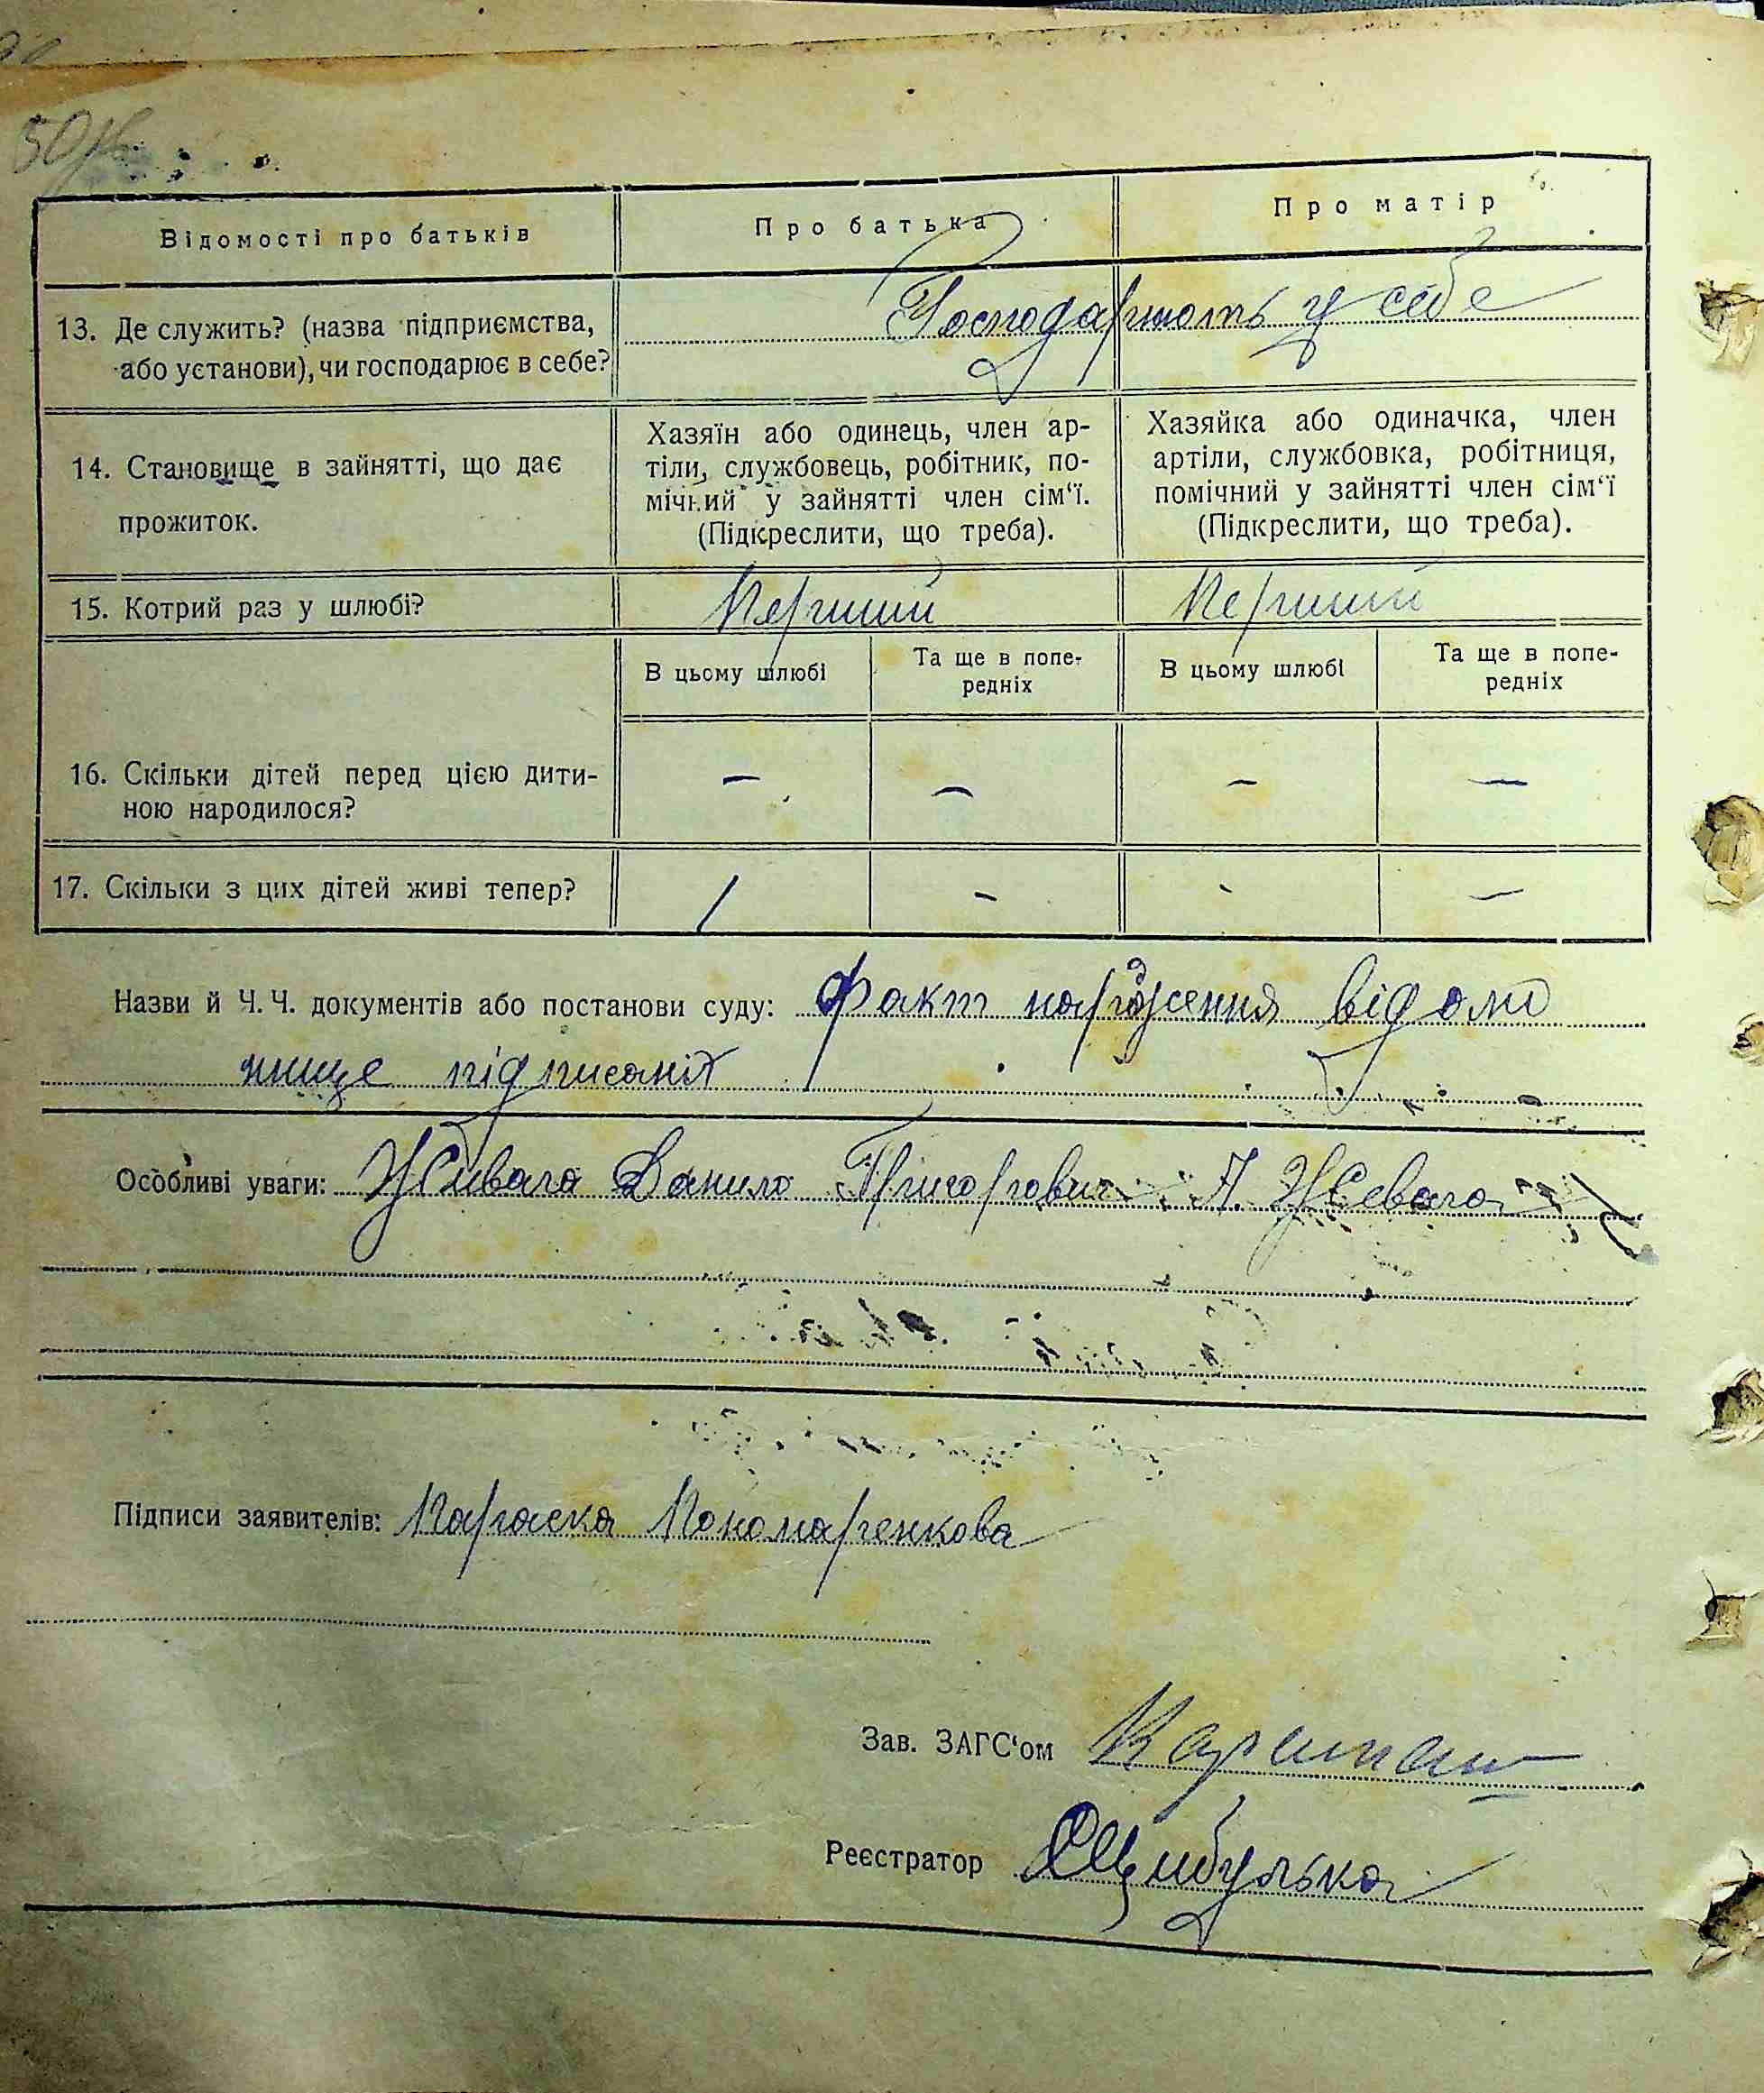 Відомості про батьків
Про батька
Про матір
13. Де служить? (назва підприємства,
або установи), чи господарює в себе?
Господарють у себе
14. Становище в зайнятті, що дає
прожиток.
Хазяїн або одинець, член ар-
тіли, службовець, робітник, по-
мічний у зайнятті член сім‘ї.
(Підкреслити, що треба).
Хазяйка або одиначка, член
артіли, службовка, робітниця,
помічний у зайнятті член сім‘ї
(Підкреслити, що треба).
15. Котрий раз у шлюбі?
Перший
Перший
В цьому шлюбі
Та ще в попе-
редніх
В цьому шлюбі
Та ще в попе-
редніх
16. Скільки дітей перед цією дити-
ною народилося?
— — — —
17. Скільки з цих дітей живі тепер?
/ - - —
Назви й Ч. Ч. документів або постанови суду: Факт народження відомо
нище підписаніх
Особливі уваги: Живага Данило Григорович
Підписи заявителів: Параска Пономаренкова
Зав. ЗАГС‘ом
Реєстратор Цибулька